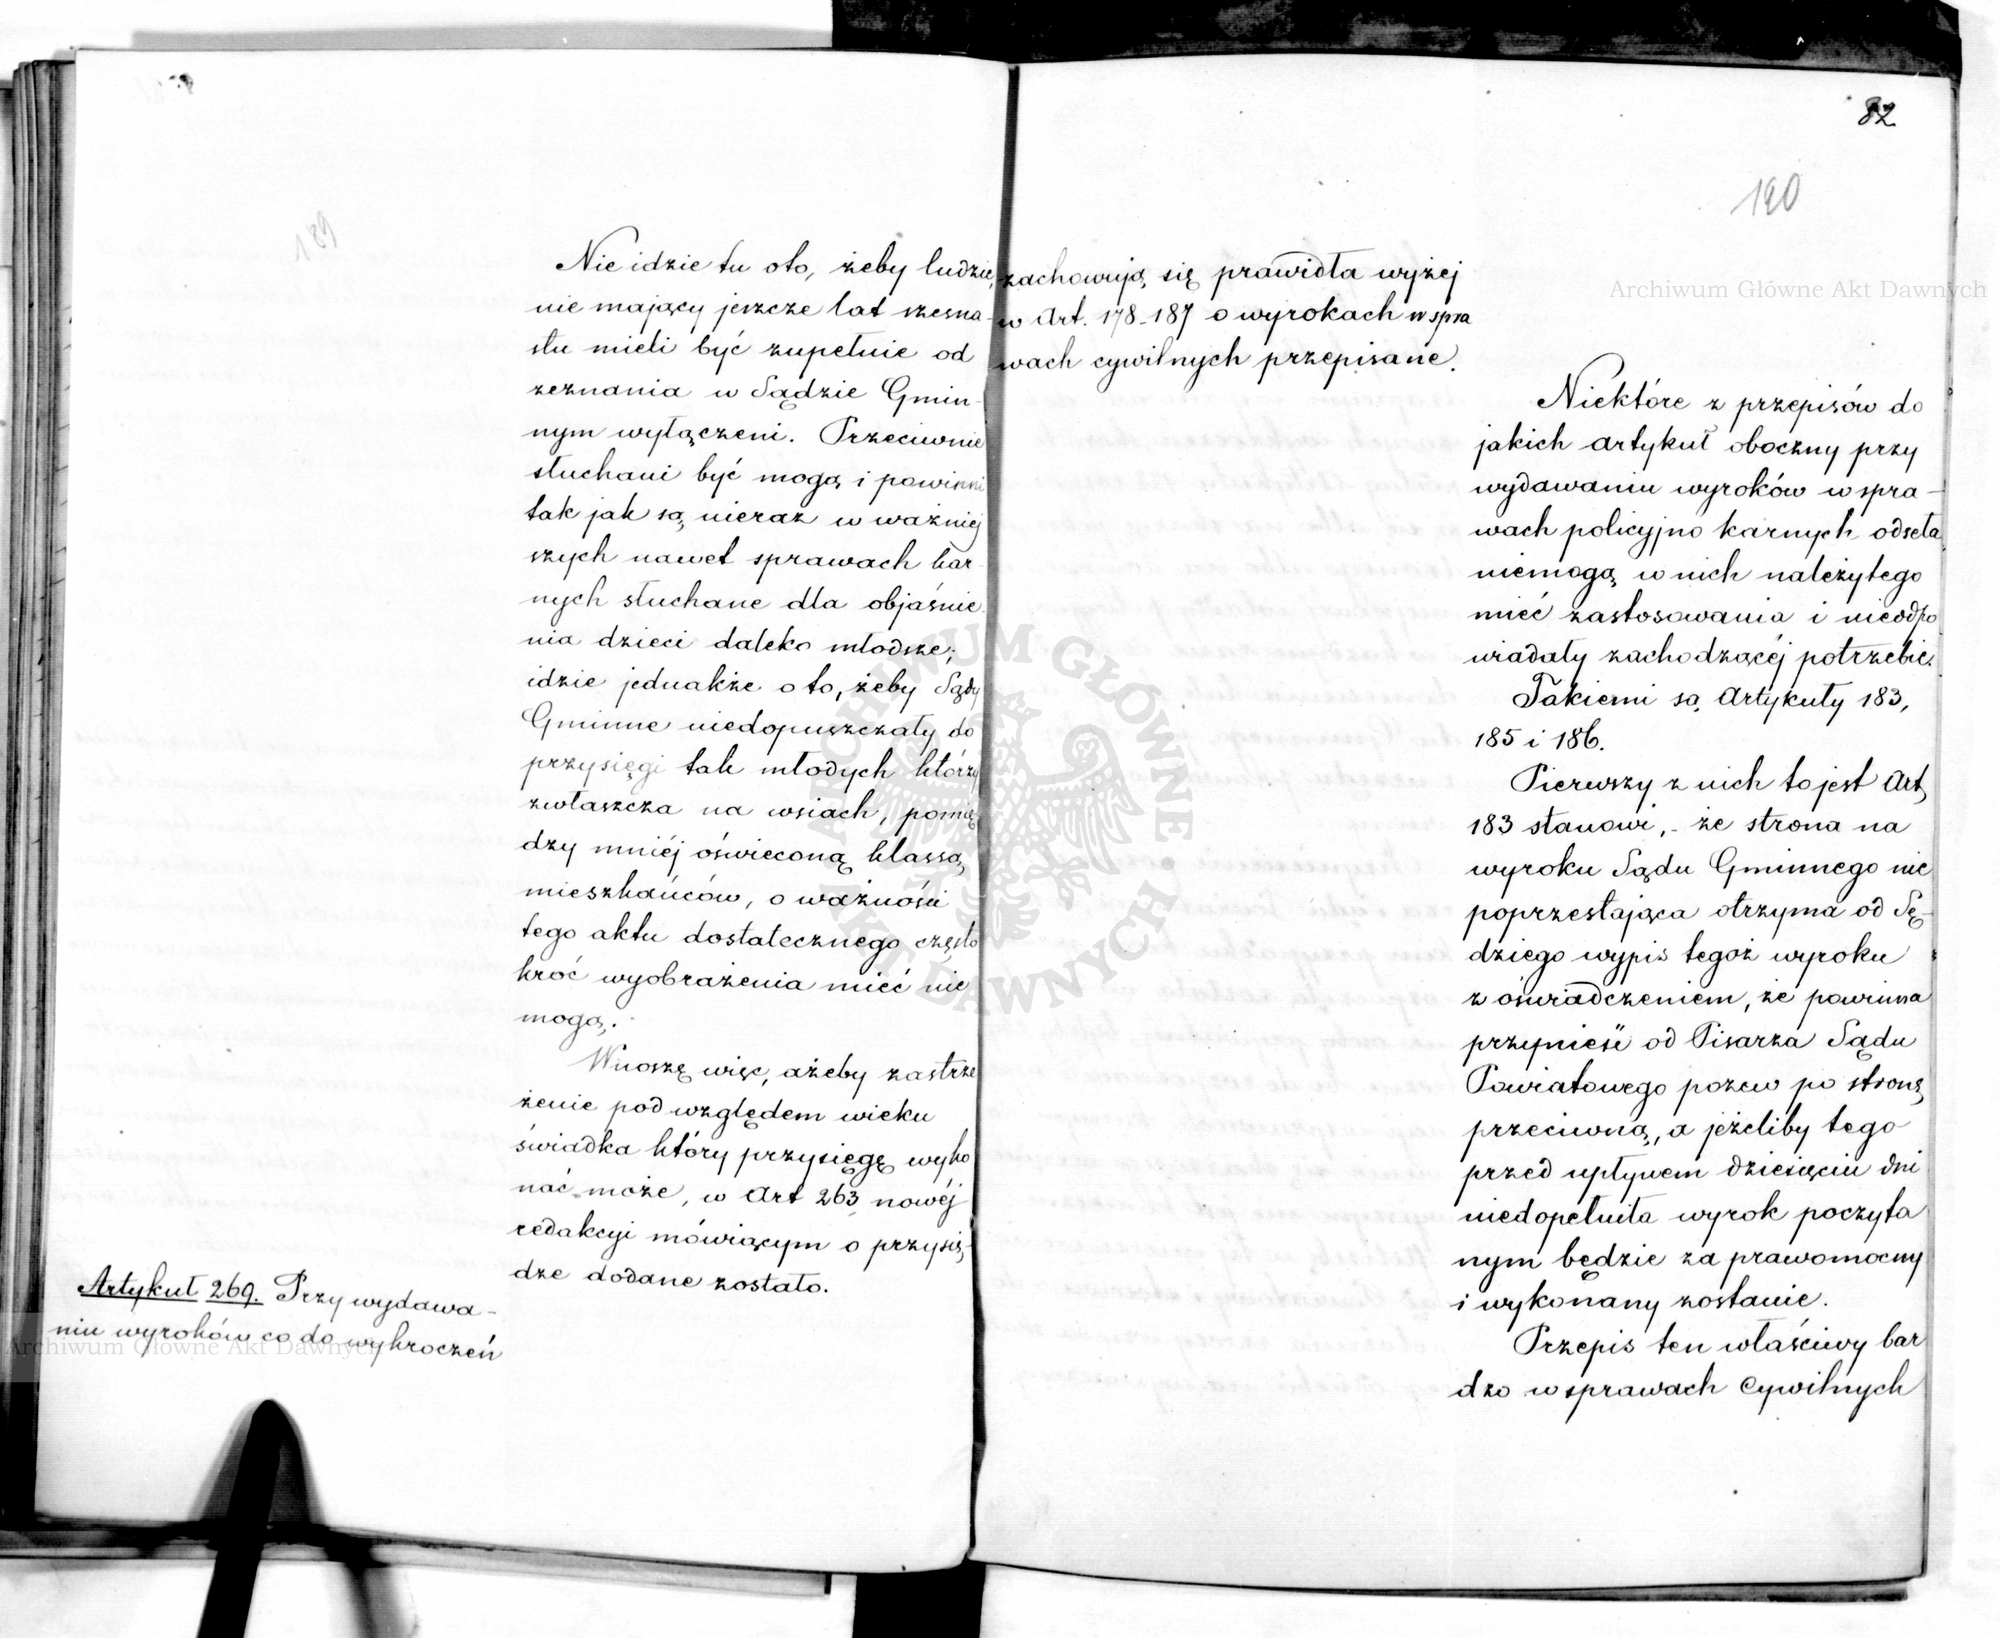 Nie idzie tu oto, żeby ludzie,
nie mający jeszcze lat szesna-
stu mieli być zupełnie od
zeznania w Sądzie Gmin-
nym wyłączeni. Przeciwnie
słuchani być mogą i powinni
tak jak są nieraz w ważniej
szych nawet sprawach kar-
nych słuchane dla objaśnie
nia dzieci daleko młodsze;
idzie jednakże o to, żeby Sądy
Gminne niedopuszczały do
przysięgi tak młodych którzy
zwłaszcza na wsiach, pomię
dzy mniéj oświeconą klassą
mieszkańców, o ważności
tego aktu dostatecznego często
kroć wyobrażenia mieć nie
mogą.
Wnoszę więc, ażeby zastrze
żenie pod względem wieku
świadka który przysięgę wyko
nać może, w Art 263 nowéj
redakcyi mówiącym o przysię-
dze dodane zostało.
Artykuł 269. Przy wydawa-
niu wyroków co do wykroczeń
82
190
zachowują się prawidła wyżej
w Art. 178-187 o wyrokach w spra
wach cywilnych przepisane.
Niektóre z przepisów do
jakich artykuł oboczny przy
wydawaniu wyroków w spra-
wach policyjno karnych odseła
niemogą w nich należytego
mieć zastosowania i nieodpo
wiadały zachodzącéj potrzebie.
Takiemi są Artykuły 183,
185 i 186.
Pierwszy z nich to jest Art,
183 stanowi,- że strona na
wyroku Sądu Gminnego nie
poprzestająca otrzyma od Sę-
dziego wypis tegoż wyroku
z oświadczeniem, że powinna
przynieść od Pisarza Sądu
Powiatowego pozew po stronę
przeciwną, a jeżeliby tego
przed upływem dziesięciu dni
niedopełniła wyrok poczyta
nym będzie za prawomocny
i wykonany zostanie.
Przepis ten właściwy bar
dzo w sprawach Cywilnych
Archiwum Główne Akt Dawnych
Archiwum Główne Akt Dawnych
ARCHIWUM GŁÓWNE AKT DAWNYCH